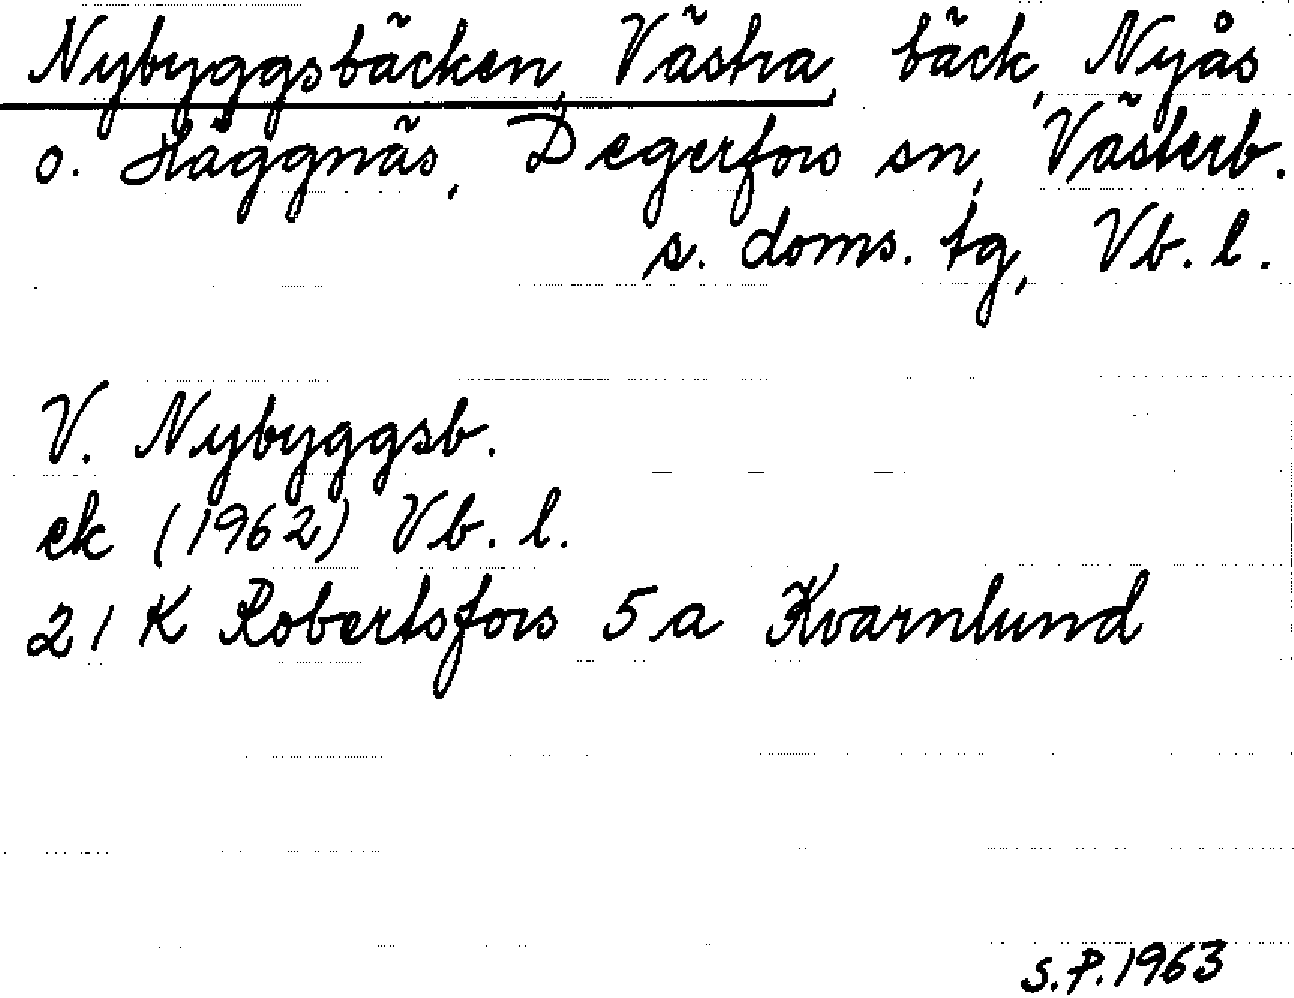 Nybyggsbäcken, Västra, bäck, Nyås
o. Häggnäs, Degerfors sn, Västerb.
s. doms. tg, Vb. l.
V. Nybyggsb.
ek (1962) Vb. l.
21 K Robertsfors 5 a Kvarnlund
S.P. 1963